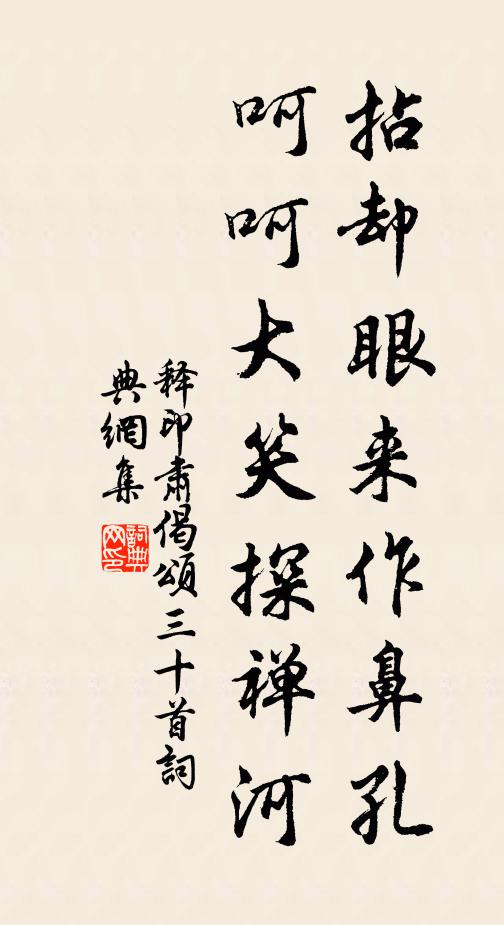 拈却眼来作鼻孔
呵呵大笑探禅河
释印肃偈頌三十首詞
典網集
詞典网印